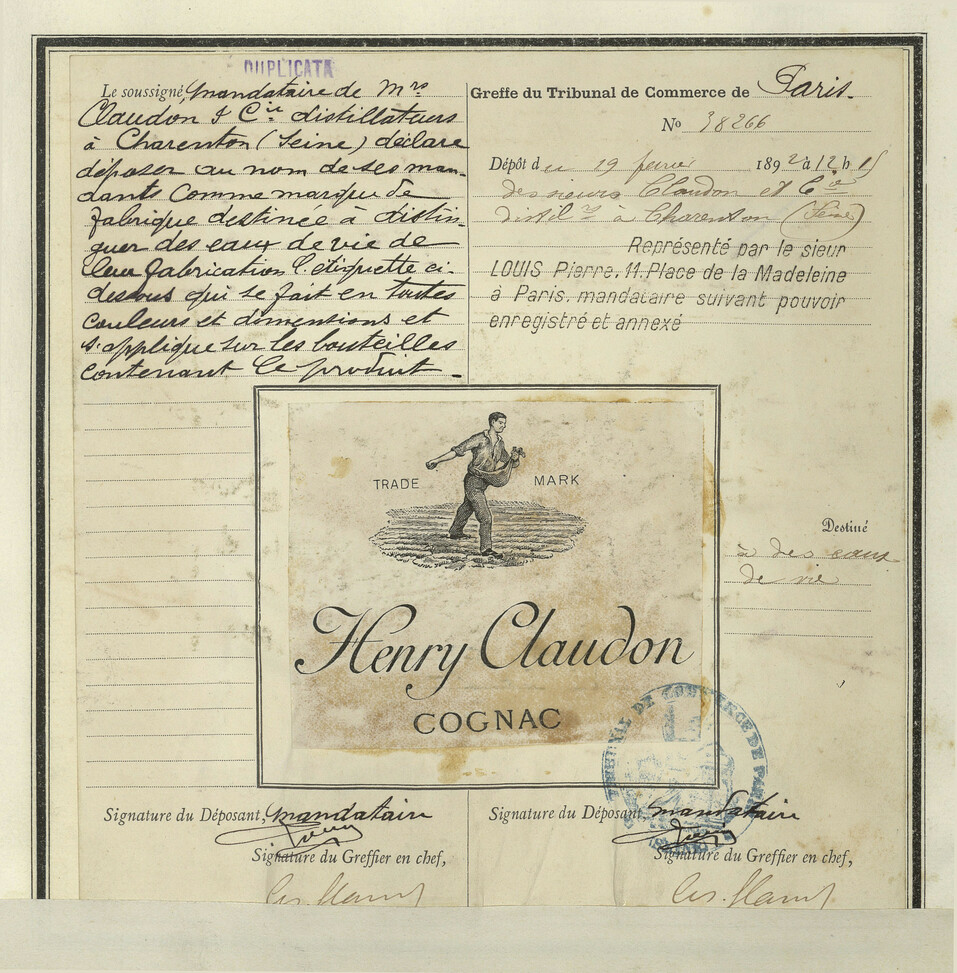 DUPLICATA
Le soussigné, mandataire de Mrs
Claudon & Cie distillateurs
à Charenton (Seine) déclare
déposer au nom de ses man-
dants comme marque de
fabrique destinée à distin-
guer des eaux de vie de
leur fabrication l'étiquette ci-
dessous qui se fait en toutes
couleurs et dimentions et
s'applique sur les bouteilles
contenant le produit.
Greffe du Tribunal de Commerce de Paris.
No 38266
Dépôt du 19 fevrier 1892 à 12 h 15
des sieurs Claudon et Cie
distilrs à Charenton (Seine)
Représenté par le sieur
LOUIS Pierre, 11, Place de la Madeleine
à Paris, mandataire suivant pouvoir
enregistré et annexé
TRADE MARK
Henry Claudon
COGNAC
Destiné
à des eaux
de vie
TRIBUNAL DE COMMERCE DE PARIS
Signature du Déposant, mandataire
Signature du Greffier en chef,
Signature du Déposant, mandataire
Signature du Greffier en chef,